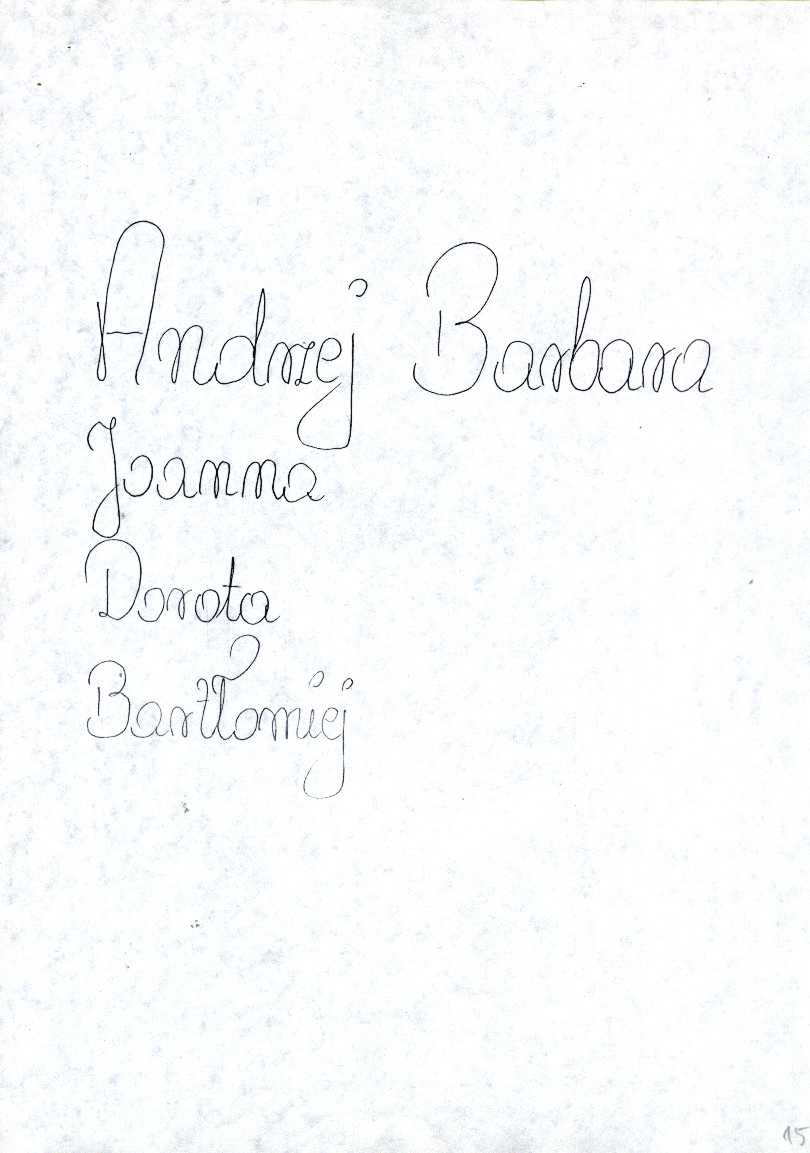 Andrzej Barbara
Joanna
Dorota
Bartłomiej
15